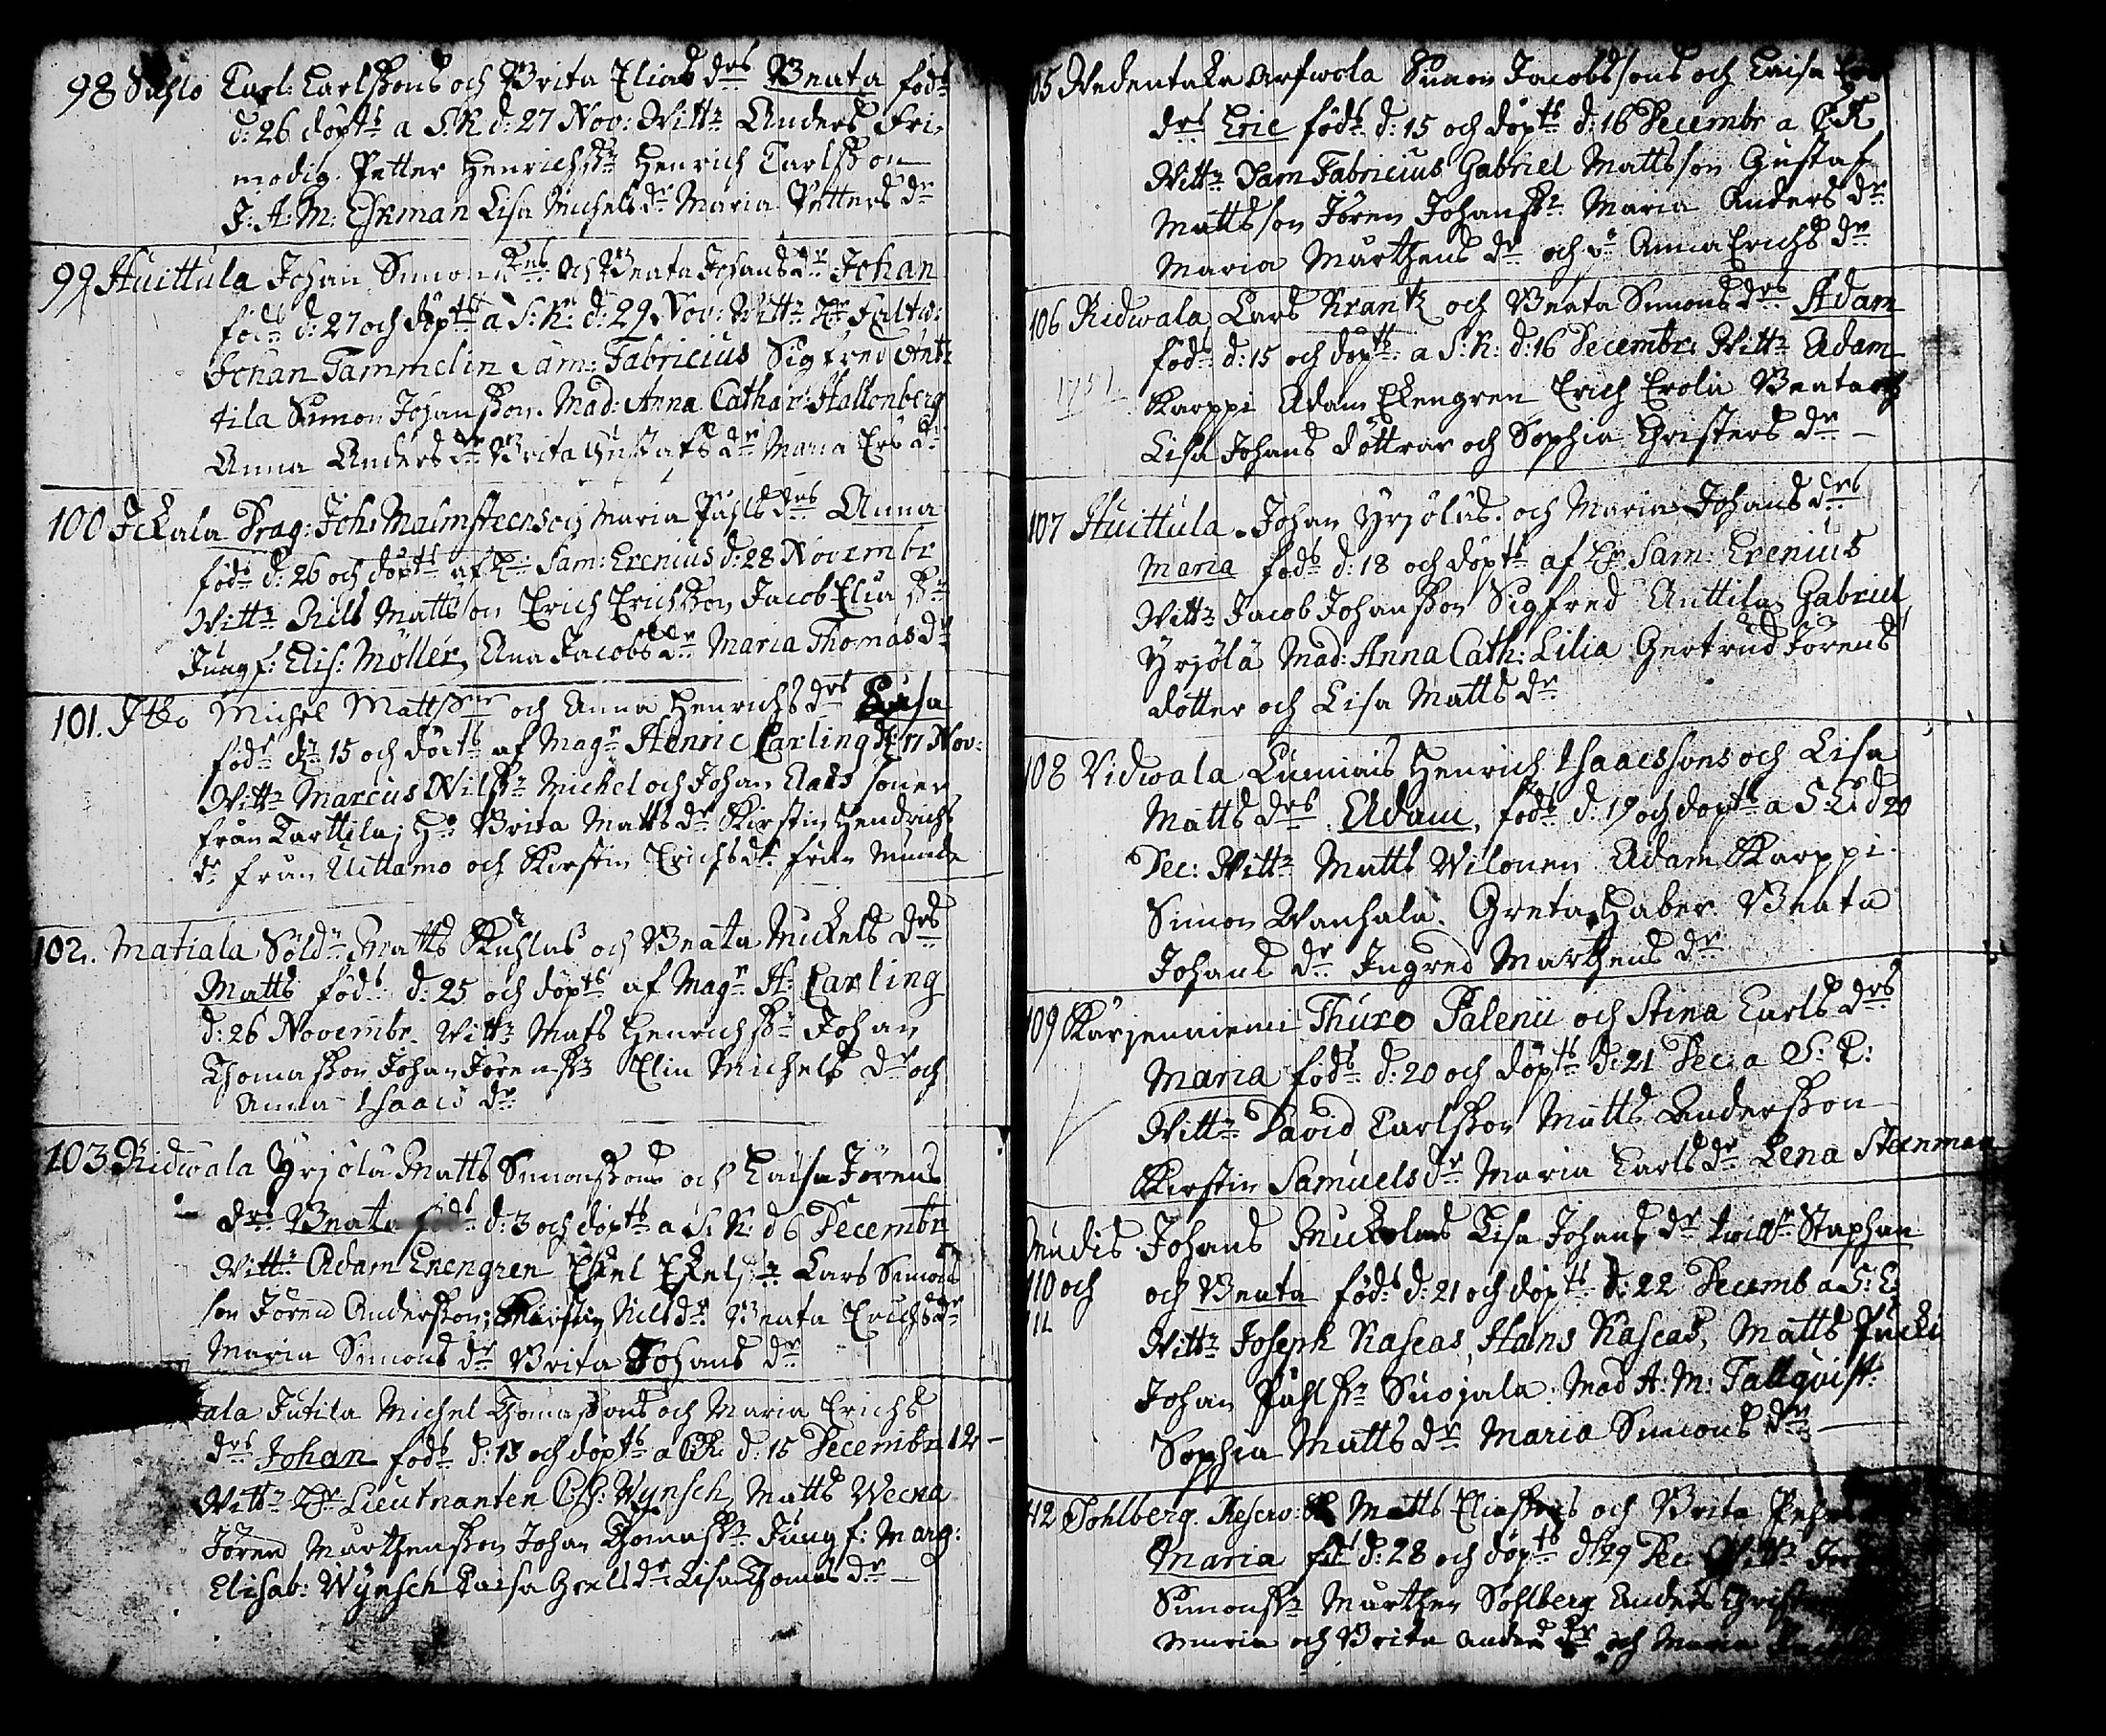 98 Suhlo Carl: Carlssons och Brita Elias drs Beata föds
d: 26 döpts a S.K d: 27 Nov: Wittn Anders Fri-
modig Petter Henrichssn Henrich Carlsson
J: A: M: Ekman Lisa Michels dr Maria Petters dr
99 Huittula Johan Simonssns och Beata Johans dr Johan
föds d: 27 och döpts a S: K: d: 29 Nov: Wittn Hr Feltw:
Johan Tammelin Sam: Fabricius Sigfred Ant-
tila Simon Johansson. Mad: Anna Cathar: Hallonberg
Anna Anders dr Brita Gustafs dr Maria Ers dr
100 Ickala Drag: Joh: Malmsteens och Maria Påhls drs Anna
föds d: 26 och döpts af Hr: Sam: Erenius d: 28 Novembr
Wittn Nils Mattsson Erich Erichsson Jacob Elia ssn
Jungf: Elis: Möller, Ana Jacobs dr Maria Thomas dr
101. Itko Michel Mattssns och Anna Henrichs drs Luisa
föds dn 15 och döpts af Magr Henric Carling d: 17 Nov:
Wittn Marcus Nilssn Michel och Johan Clas söner
från Carttila; Hu Brita Matts dr Kirstin Hendrichs
dr från Uittamo och Kirstin Erichs dr från
102. Matiala Soldn Matts Kuhlas och Beata Mickels drs
Matts föds d: 25 och döpts af Magr H: Carling
d: 26 Novembr. Wittn Mats Henrichssn Johan
Thomasson Johan Jörenssn Elin Michels dr och
Anna Isaacs dr
103 Ridwala Yrjölä Matts Simonssons och Caisa Jörens
drs Beata föds d: 3 och döpts a S: K: d 6 Decembr
Wittn Adam Enengren Eskel Eskelssn Lars Simons
son Jören Andersson; Kirstin Nils dr Beata Erichs dr
Maria Simons dr Brita Johans dr
ala Jutila Michel Thomassons och Maria Erichs
drs Johan föds d: 13 och döpts a d: 15 Decembr
Wittn Hr Lieutnanten Wynsch, Matts Wecka
Jören Marthensson Johan Thomassn Jungf: Marg:
Elisab: Wynsch Caisa Greels dr Lisa Thomas dr
05 Wedentaka Arfwola Simon Jacobssons och Caisa
drs Eric föds d: 15 och döpts d: 16 Decembr a
Wittn Sam Fabricius Gabriel Mattsson Gustaf
Mattsson Jören Johanssn Maria Anders dr
Maria Marthens dr och Anna Erichs dr
106 Ridwala Lars Krantz och Beata Simons drs Adam
föds d: 15 och döpts a S: K: d: 16 Decembr Wittn Adam
1751
Karppi Adam Ekengren Erich Erola Beata och
Lisa Johans döttrar och Sophia Christers dr
107 Huittula Johan Yrjöläs och Maria Johans drs
Maria föds d: 18 och döpts af Hr Sam: Erenius
Wittn Jacob Johansson Sigfred Anttila Gabriel
Yrjölä Mad: Anna Cath: Lilia Gertrud Jörens
dotter och Lisa Matts dr
108 Vidwala Lumiais Henrich Isaacssons och Lisa
Matts drs Adam, föds d. 19 och döpts a S: E: d 20
Dec: Wittn Matts Wilonen Adam Karppi
Simon Wanhala. Greta Haber Beata
Johans dr Ingred Marthens dr
109 Karjenniemi Thuro Palenii och Stina Carls drs
Maria föds d: 20 och döpts d: 21 Dec: a S: E:
Wittn David Carlsson Matts Andersson
Kirstin Samuels dr Maria Carls dr Lena Steenman
Johans Mickolas Lisa Johans dr twill: Staphan
110 och och Beata föds d: 21 och döpts d: 22 Decemb a S: E:
111
Wittn Joseph Kaseas, Hans Kaseas, Matts Pucki
Johan Påhlssn Suojala. Mad A: M: Tallqvist
Sophia Matts dr Maria Simons dr
112 Sohlberg Reserv: Matts Eliassons och Brita
Maria föds d: 28 och döpts d: 29 Dec Wittn
Simonssn Marthen Sohlberg Anders
Maria och Brita Anders dr och Maria